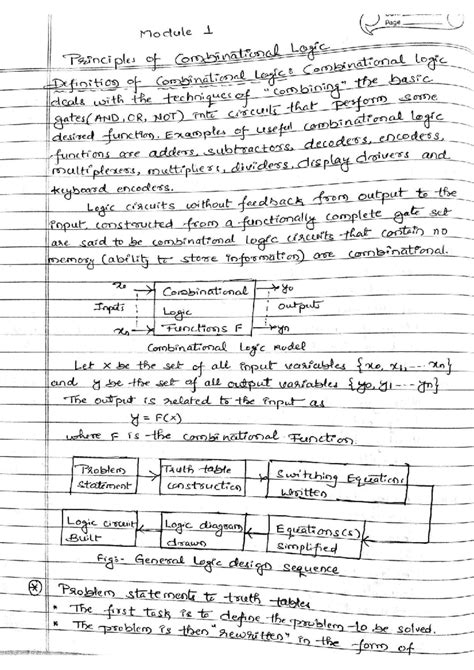 Page
Module 1
Principles of Combinational Logic
Definition of Combinational Logic: Combinational logic
deals with the techniques of "combining" the basic
gates (AND, OR, NOT) into circuits that perform some
desired function. Examples of useful combinational logic
functions are adders, subtractors, decoders, encoders,
multiplexers, multipliers, dividers, display drivers and
keyboard encoders.
Logic circuits without feedback from output to the
input, constructed from a functionally complete gate set
are said to be combinational logic circuits that contain no
memory (ability to store information) are combinational.
x0 → Combinational → y0
Inputs Logic outputs
xn → Functions F → yn
Combinational Logic Model
Let X be the set of all input variables {x0, x1, ... xn}
and y be the set of all output variables {y0, y1 --- yn}
The output is related to the input as
y = F(x)
where F is the combinational Function.
Problem statement
Truth table construction
Switching Equations written
Logic circuit Built
Logic diagram drawn
Equations(s) simplified
Fig:- General Logic design sequence
* Problem statements to truth tables
* The first task is to define the problem to be solved.
* The problem is then "rewritten" in the form of